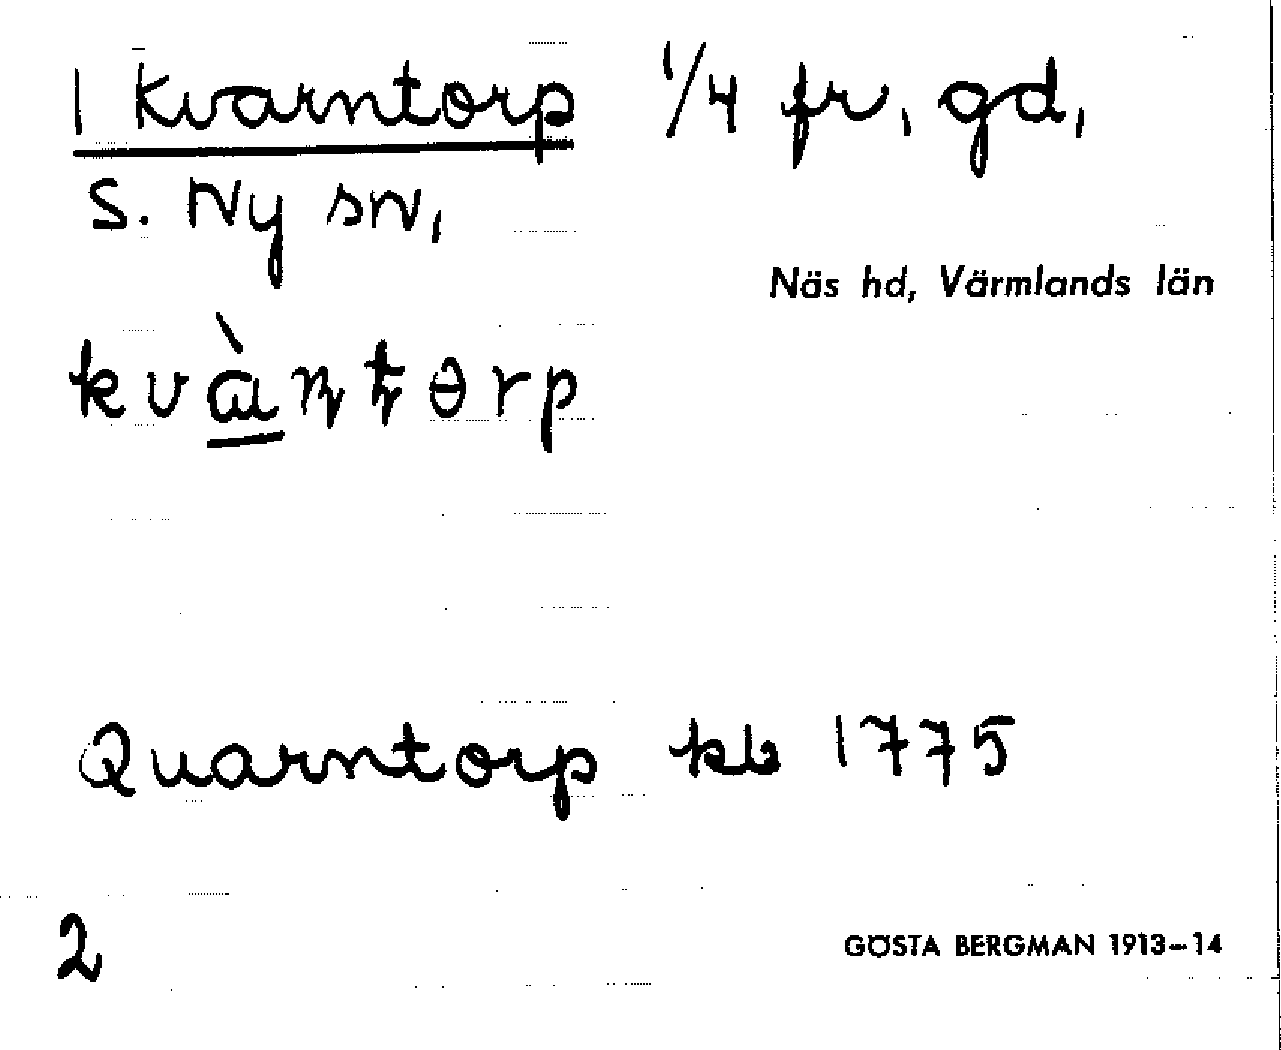 1 Kvarntorp 1/4 fr, gd,
S. Ny sn,
Näs hd, Värmlands län
Quarntorp kb 1775
2
GÖSTA BERGMAN 1913–14